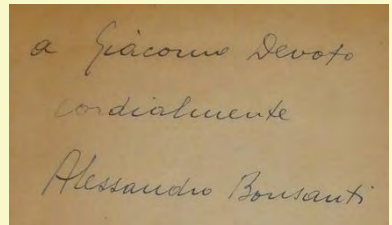 a Giacomo Devoto
cordialmente
Alessandro Bonsanti